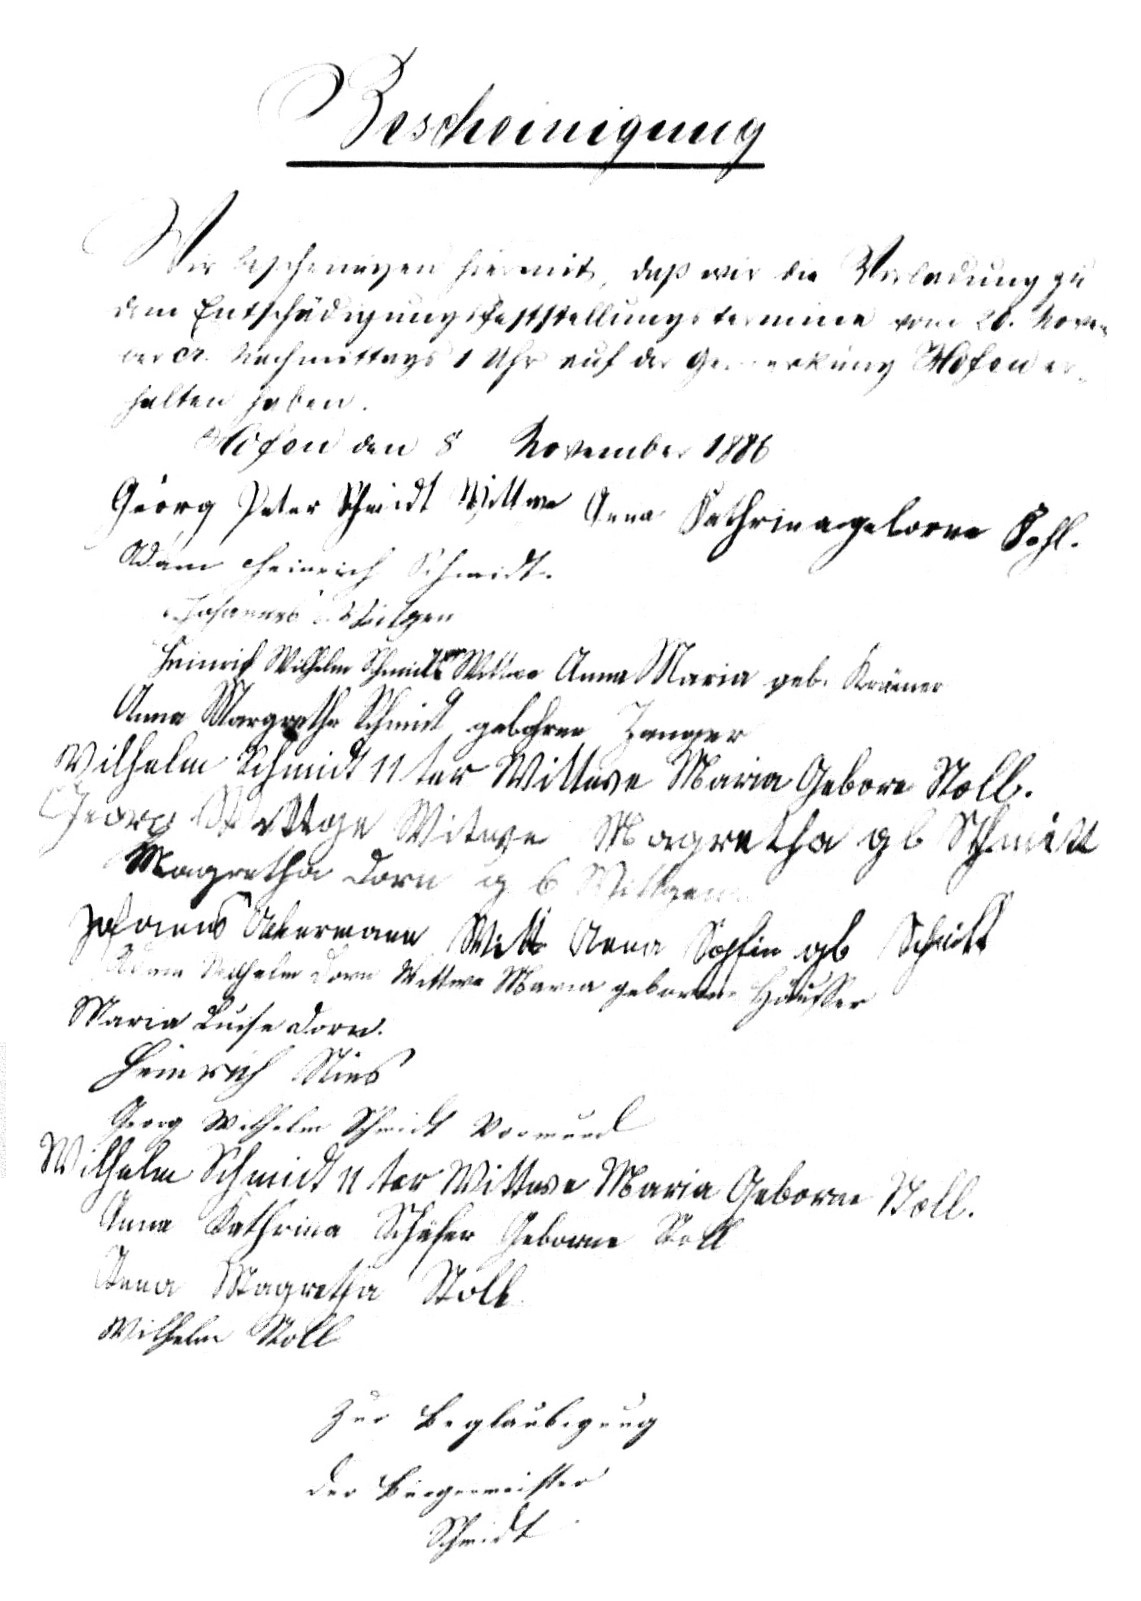 Bescheinigung
Wir bescheinigen hiermit, daß wir die Vorladung zu
dem Entschädigungsfeststellungstermine vom 26. Novem-
ber cr. Nachmittags 1 Uhr auf der Gemarkung Hofen er-
halten haben.
Hofen den 8 November 1886
Georg Peter Schmidt Wittwe Anna Kathrina geborne Kohl.
Adam Heinrich Schmidt.
Johannes
Heinrich Wilhelm Schmidts Wittwe Anna Maria geb. Krämer
Anna Margrethe Schmidt gebohren Zanger
Wilhelm Schmidt 11 ter Wittwe Maria Gebore Stoll.
Georg Witwe Magretha gb Schmitt
Magretha Dorn gb Wittgen
Johannes Ackermann Witt Anna Sophia gb Schmitt
Adam Wilhelm Dorn Wittwe Maria geborene Häusser
Maria Luise Dorn.
Heinrich Nies
Georg Wilhelm Schmidt Vormund
Wilhelm Schmidt 11 ter Wittwe Maria Geborne Stoll.
Anna Kathrina Schäfer Geborne Stoll
Anna Magretha Stoll
Wilhelm Stoll
Zur Beglaubigung
Der Bürgermeister
Schmidt